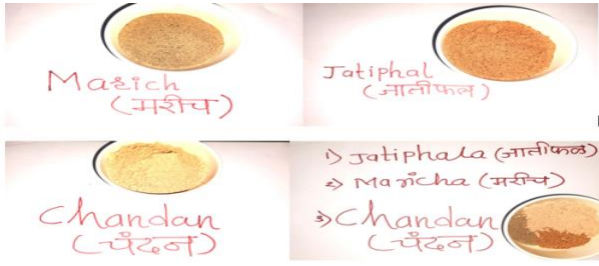 Marich
(मरीच)
Jatiphal
(जातीफल)
Chandan
(चंदन)
1) Jatiphala (जातीफळ)
2) Maricha (मरीच)
3) Chandan
(चंदन)